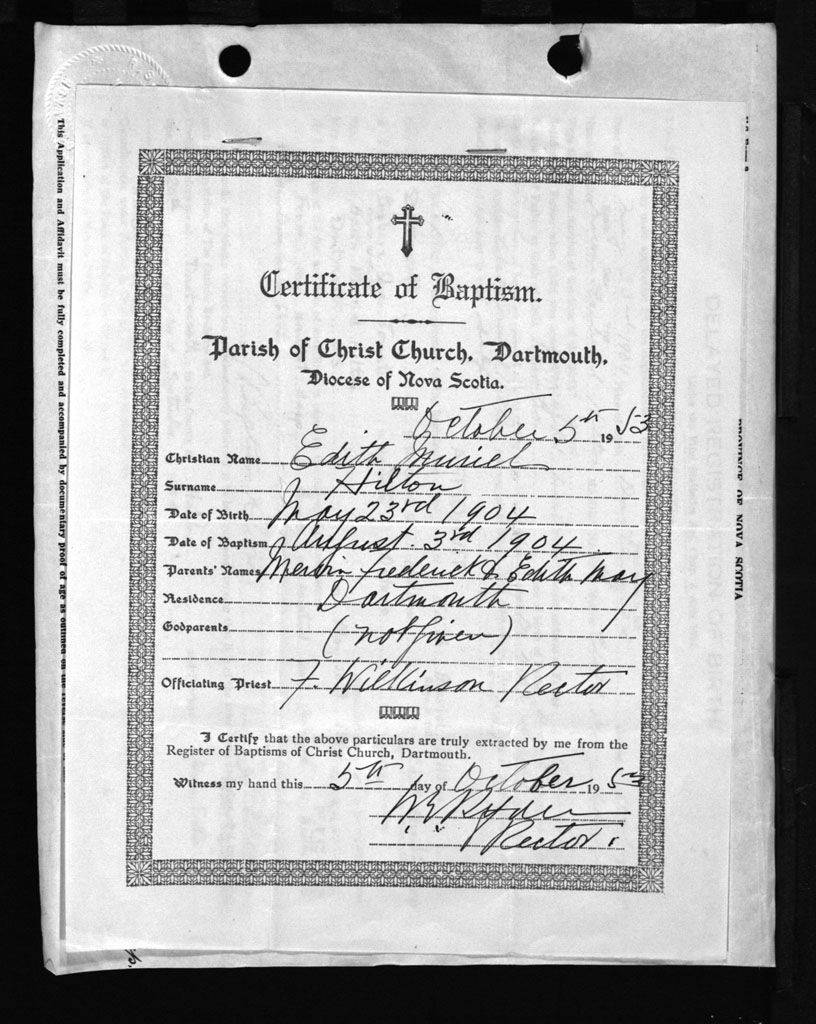 Certificate of Baptism.
Parish of Christ Church, Dartmouth,
Diocese of Nova Scotia.
October 5th 1953
Christian Name Edith Muriel
Surname Hilton
Date of Birth May 23rd 1904
Date of Baptism August 3rd 1904
Parents' Names Mervin Frederick & Edith May
Residence Dartmouth
Godparents (not given)
Officiating Priest F. Wilkinson Rector
I Certify that the above particulars are truly extracted by me from the
Register of Baptisms of Christ Church, Dartmouth.
Witness my hand this 5th day of October 1953
Rector.
This Application and Affidavit must be fully completed and accompanied by documentary proof of age as outlined on the
PROVINCE OF NOVA SCOTIA